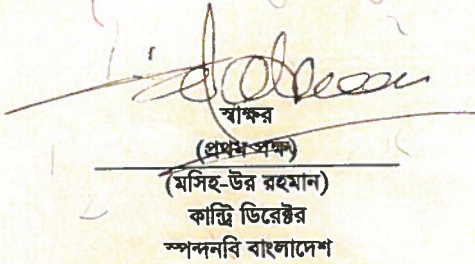 স্বাক্ষর
(প্রথম পক্ষ)
(মসিহ-উর রহমান)
কান্ট্রি ডিরেক্টর
স্পন্দনবি বাংলাদেশ